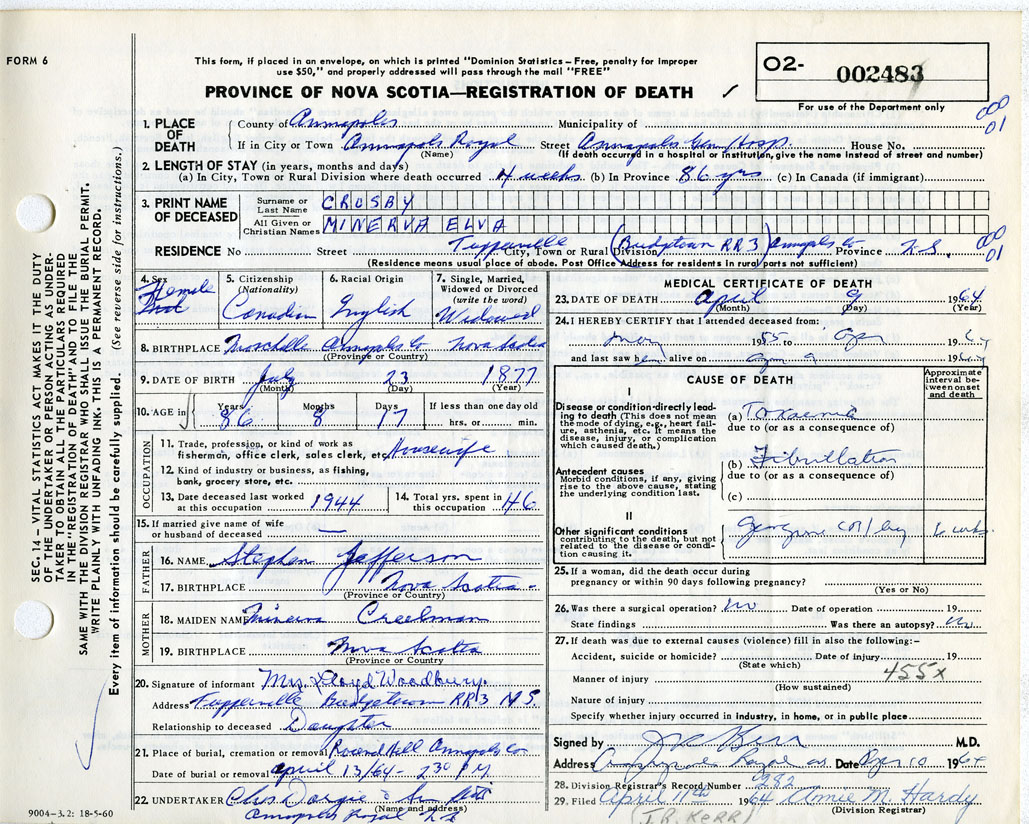 FORM 6
This form, if placed in an envelope, on which is printed "Dominion Statistics - Free, penalty for improper
use $50," and properly addressed will pass through the mail "FREE"
PROVINCE OF NOVA SCOTIA—REGISTRATION OF DEATH ✓
O2- 002483
For use of the Department only
000
01
1. PLACE OF DEATH
County of Annapolis Municipality of
If in City or Town Annapolis Royal Street Annapolis Gen Hosp. House No.
(Name) (If death occurred in a hospital or institution, give the name instead of street and number)
2. LENGTH OF STAY (in years, months and days)
(a) In City, Town or Rural Division where death occurred 4 weeks (b) In Province 86 yrs (c) In Canada (if immigrant)
3. PRINT NAME OF DECEASED
Surname or Last Name CROSBY
All Given or Christian Names MINERVA ELVA
RESIDENCE No Street Tupperville City, Town or Rural Division (Bridgetown RR3) Annapolis Co Province N.S.
000
01
(Residence means usual place of abode. Post Office Address for residents in rural parts not sufficient)
4. Sex Female
5. Citizenship (Nationality) Canadian
6. Racial Origin English
7. Single, Married, Widowed or Divorced (write the word) Widowed
8. BIRTHPLACE Moschelle Annapolis Co Nova Scotia
(Province or Country)
9. DATE OF BIRTH July 23 1877
(Month) (Day) (Year)
10. AGE in Years 86 Months 8 Days 17 If less than one day old
hrs. or min.
OCCUPATION
11. Trade, profession, or kind of work as
fisherman, office clerk, sales clerk, etc. Housewife
12. Kind of industry or business, as fishing,
bank, grocery store, etc.
13. Date deceased last worked
at this occupation 1944
14. Total yrs. spent in
this occupation 46
15. If married give name of wife
or husband of deceased —
FATHER
16. NAME Stephen Jefferson
17. BIRTHPLACE Nova Scotia
(Province or Country)
MOTHER
18. MAIDEN NAME Minerva Creelman
19. BIRTHPLACE Nova Scotia
(Province or Country
20. Signature of informant Mrs. Lloyd Woodbury.
Address Tupperville Bridgetown RR3 N.S.
Relationship to deceased Daughter
21. Place of burial, cremation or removal Annapolis Co
Date of burial or removal April 13/64 - 2 30 P.M.
22. UNDERTAKER Chas Dargie & Son
(Name and address)
Annapolis Royal N.S.
MEDICAL CERTIFICATE OF DEATH
23. DATE OF DEATH April 9 1964
(Month) (Day) (Year)
24. I HEREBY CERTIFY that I attended deceased from:
1955 to 19
and last saw alive on 9 19
CAUSE OF DEATH
Approximate interval between onset and death
I
Disease or condition directly leading to death (This does not mean
the mode of dying, e.g., heart failure, asthenia, etc. It means the
disease, injury, or complication
which caused death.)
(a) Toxaemia
due to (or as a consequence of)
Antecedent causes
Morbid conditions, if any, giving
rise to the above cause, stating
the underlying condition last.
(b) Fibrillation
due to (or as a consequence of)
(c)
II
Other significant conditions
contributing to the death, but not
related to the disease or condition causing it.
25. If a woman, did the death occur during
pregnancy or within 90 days following pregnancy?
(Yes or No)
26. Was there a surgical operation? No Date of operation 19
State findings Was there an autopsy? No
27. If death was due to external causes (violence) fill in also the following:-
Accident, suicide or homicide? Date of injury 19
(State which)
Manner of injury 455X
(How sustained)
Nature of injury
Specify whether injury occurred in industry, in home, or in public place
Signed by J R Kerr M.D.
Address Date 10 1964
28. Division Registrar's Record Number 282
29. Filed April 11th 1964 Annie M. Hardy
(Division Registrar)
(J.R. KERR)
9004-3.2: 18-5-60
SEC. 14 - VITAL STATISTICS ACT MAKES IT THE DUTY
OF THE UNDERTAKER OR PERSON ACTING AS UNDERTAKER TO OBTAIN ALL THE PARTICULARS REQUIRED
IN THE "REGISTRATION OF DEATH" AND TO FILE THE
SAME WITH THE DIVISION REGISTRAR WHO SHALL ISSUE THE BURIAL PERMIT.
WRITE PLAINLY WITH UNFADING INK. THIS IS A PERMANENT RECORD.
Every item of information should be carefully supplied. (See reverse side for instructions.)